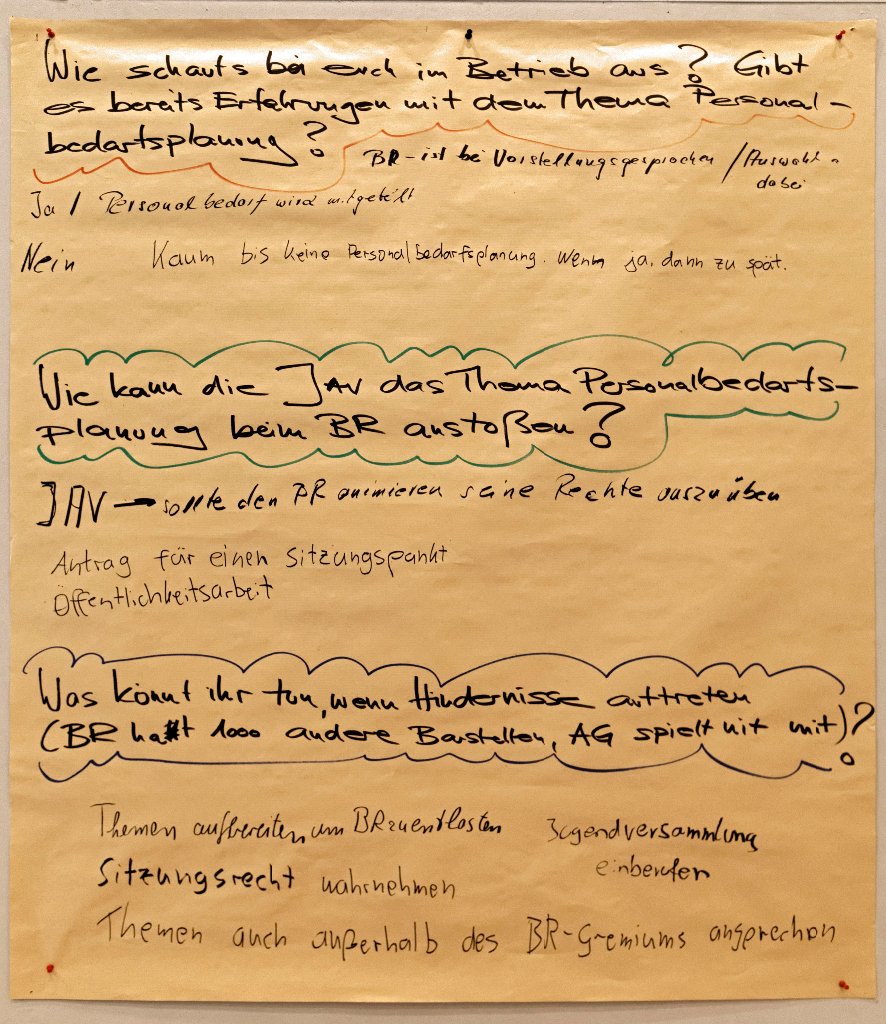 Wie schauts bei euch im Betrieb aus? Gibt
es bereits Erfahrungen mit dem Thema Personal-
bedarfsplanung?
BR-ist bei Vorstellungsgesprächen / Auswahl
dabei
Ja / Personalbedarf wird mitgeteilt
Nein Kaum bis keine Personalbedarfsplanung. Wenn ja, dann zu spät.
Wie kann die JAV das Thema Personalbedarfs-
planung beim BR anstoßen?
JAV → sollte den BR animieren seine Rechte auszuüben
Antrag für einen Sitzungspunkt
Öffentlichkeitsarbeit
Was könnt ihr tun, wenn Hindernisse auftreten
(BR hat 1000 andere Baustellen, AG spielt nit mit)?
Themen aufbereiten um BR zu entlasten
Jugendversammlung
einberufen
Sitzungsrecht wahrnehmen
Themen auch außerhalb des BR-Gremiums ansprechen